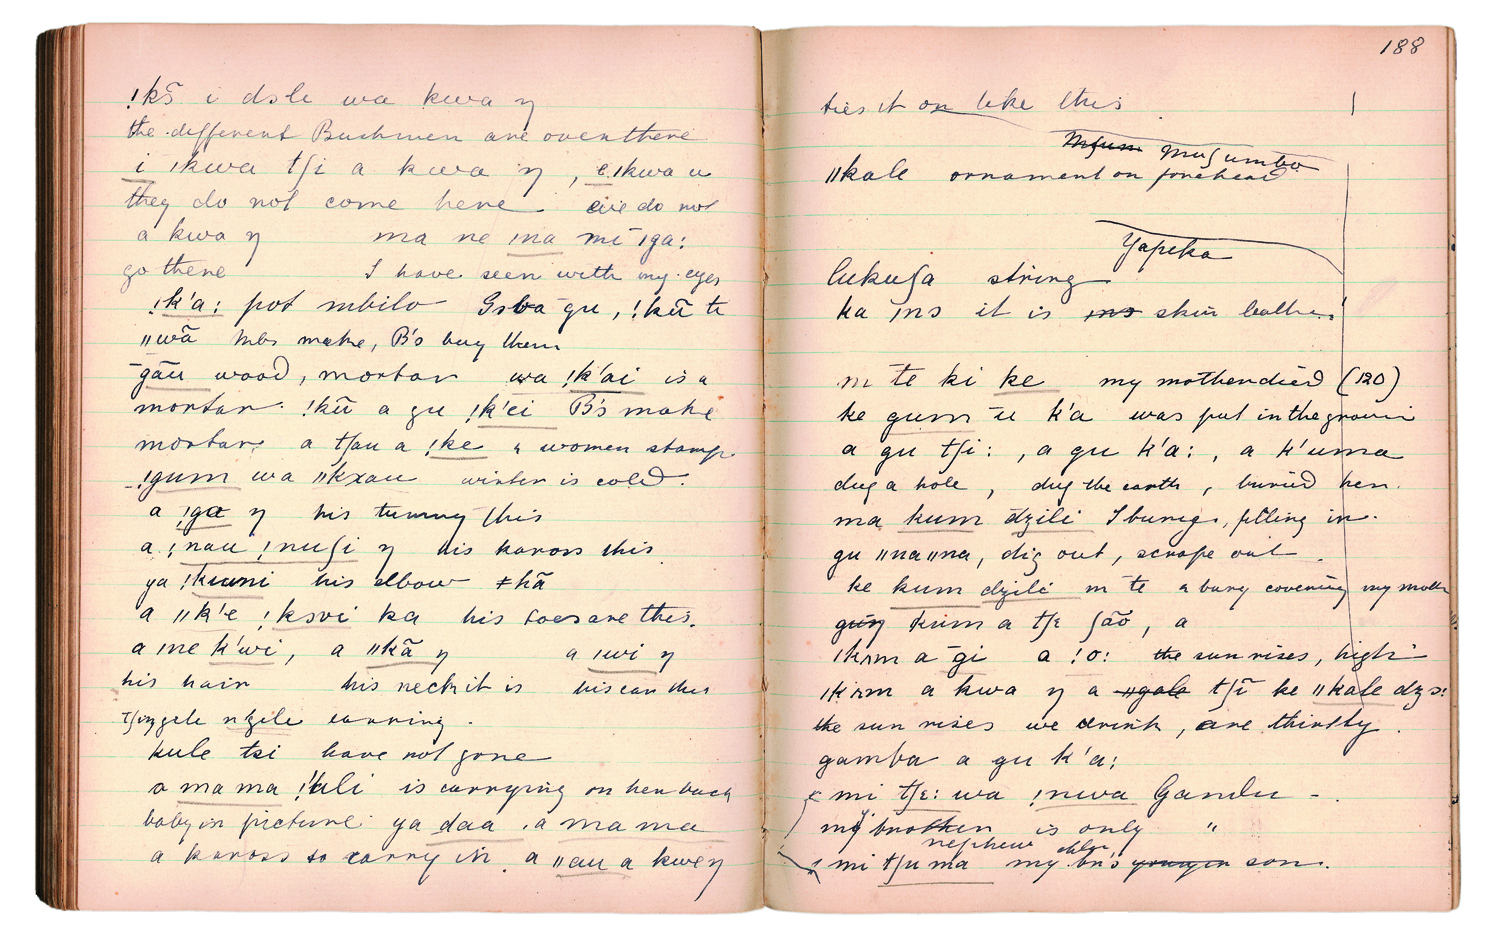 !kɔ̄ i dɔle wa kwa ŋ
the different Bushmen are over there
i ikwa tʃi a kwa ŋ, e ikwa u
they do not come here we do not
a kwa ŋ ma ne ina mī iga:
go there I have seen with my eyes
!k'a: pot mbilo gu, !kū te
ǁwā make, B's buy them
gāu wood, mortar wa !k'ai is a
mortar. !kū a gu !k'ei B's make
mortar; a tʃau a !ke women stamp
!gum wa ǁkxau winter is cold.
a !ga ŋ his tummy this
a !nau !nuʃi ŋ his kaross this
ya !kuni his elbow ǂkā
a ǁk'e !kɔvi ka his toes are this.
a ne k'wi, a ǁkā ŋ a ıwi ŋ
his hair his neck it is his ear this
earring.
kule tsi have not gone
a ma ma !kuli is carrying on her back
baby in picture ya daa . a ma ma
a kaross to carry in a ǁau a kwe ŋ
188
ties it on like this
muʃumbo
ǁkale ornament on forehead
Yapeka
lukuʃa string
ka ınɔ it is skin leather!
m te ki ke my mother died (120)
ke gum u k'a was put in the ground
a gu tʃi: , a gu k'a: , a k'uma
dug a hole , dug the earth , buried her.
ma kum dzili I bury, filling in.
gu ǁnaǁna, dig out, scrape out.
ke kum dzili m te bury covering my moth
kum a tʃɛ ʃāō , a
ıkɪm a gi a !o: the sun rises, high
ıkɪm a kwa ŋ a ǁgale tʃī ke ǁkale dzɔ:
the sun rises we drink, are thirsty.
gamba a gu k'a:
mi tʃɛ: wa !nwa Gandu -.
my brother is only "
nephew
mi tʃu ma my br's younger son.